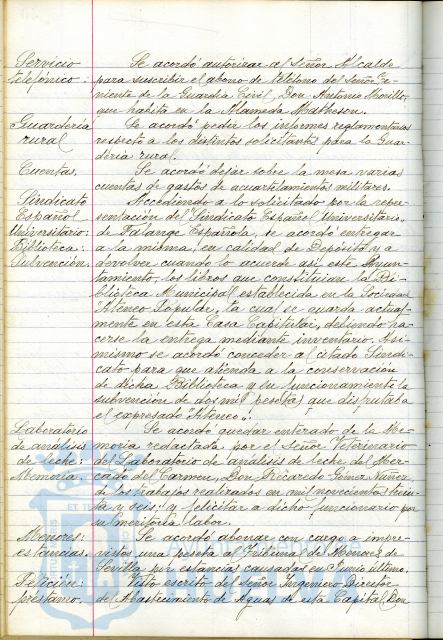 Servicio
telefónico:
Se acordó autorizar al Señor Alcalde
para suscribir el abono de teléfono del Señor Te-
niente de la Guardia Civil, Don Antonio Morillo,
que habita en la Alameda Matheson.
Guardería
rural
Se acordó pedir los informes reglamentarios
respecto a los distintos solicitantes para la Guar-
dería rural.
Cuentas.
Se acordó dejar sobre la mesa varias
cuentas de gastos de acuartelamientos militares.
Sindicato
Español
Universitario:
Biblioteca:
Subvención:
Accediendo a lo solicitado por la repre-
sentación del Sindicato Español Universitario,
de Falange Española, se acordó entregar
a la misma, en calidad de Depósito y a
devolver cuando lo acuerde así este Ayun-
tamiento, los libros que constituían la Bi-
blioteca Municipal establecida en la Sociedad
"Ateneo Popular, la cual se guarda actual-
mente en esta Casa Capitular, debiendo ha-
cerse la entrega mediante inventario. Asi-
mismo se acordó conceder al citado Sindi-
cato para que atienda a la conservación
de dicha Biblioteca y su funcionamiento la
subvención de dos mil pesetas que disfrutaba
el expresado "Ateneo".
Laboratorio
de análisis
de leche:
Memoria.
Se acordó quedar enterado de la Me-
moria redactada por el Señor Veterinario
del Laboratorio de análisis de leche del Mer-
cado del Carmen, Don Ricardo Gómez Núñez,
de los trabajos realizados en mil novecientos trein-
ta y seis; y felicitar a dicho funcionario por
su meritoria labor.
Menores:
estancias.
Se acordó abonar con cargo a impre-
vistos, una peseta al Tribunal de Menores de
Sevilla por estancias causadas en Junio último.
Petición:
préstamo.
Visto escrito del Señor Ingeniero Director
del Abastecimiento de Aguas de esta Capital Don